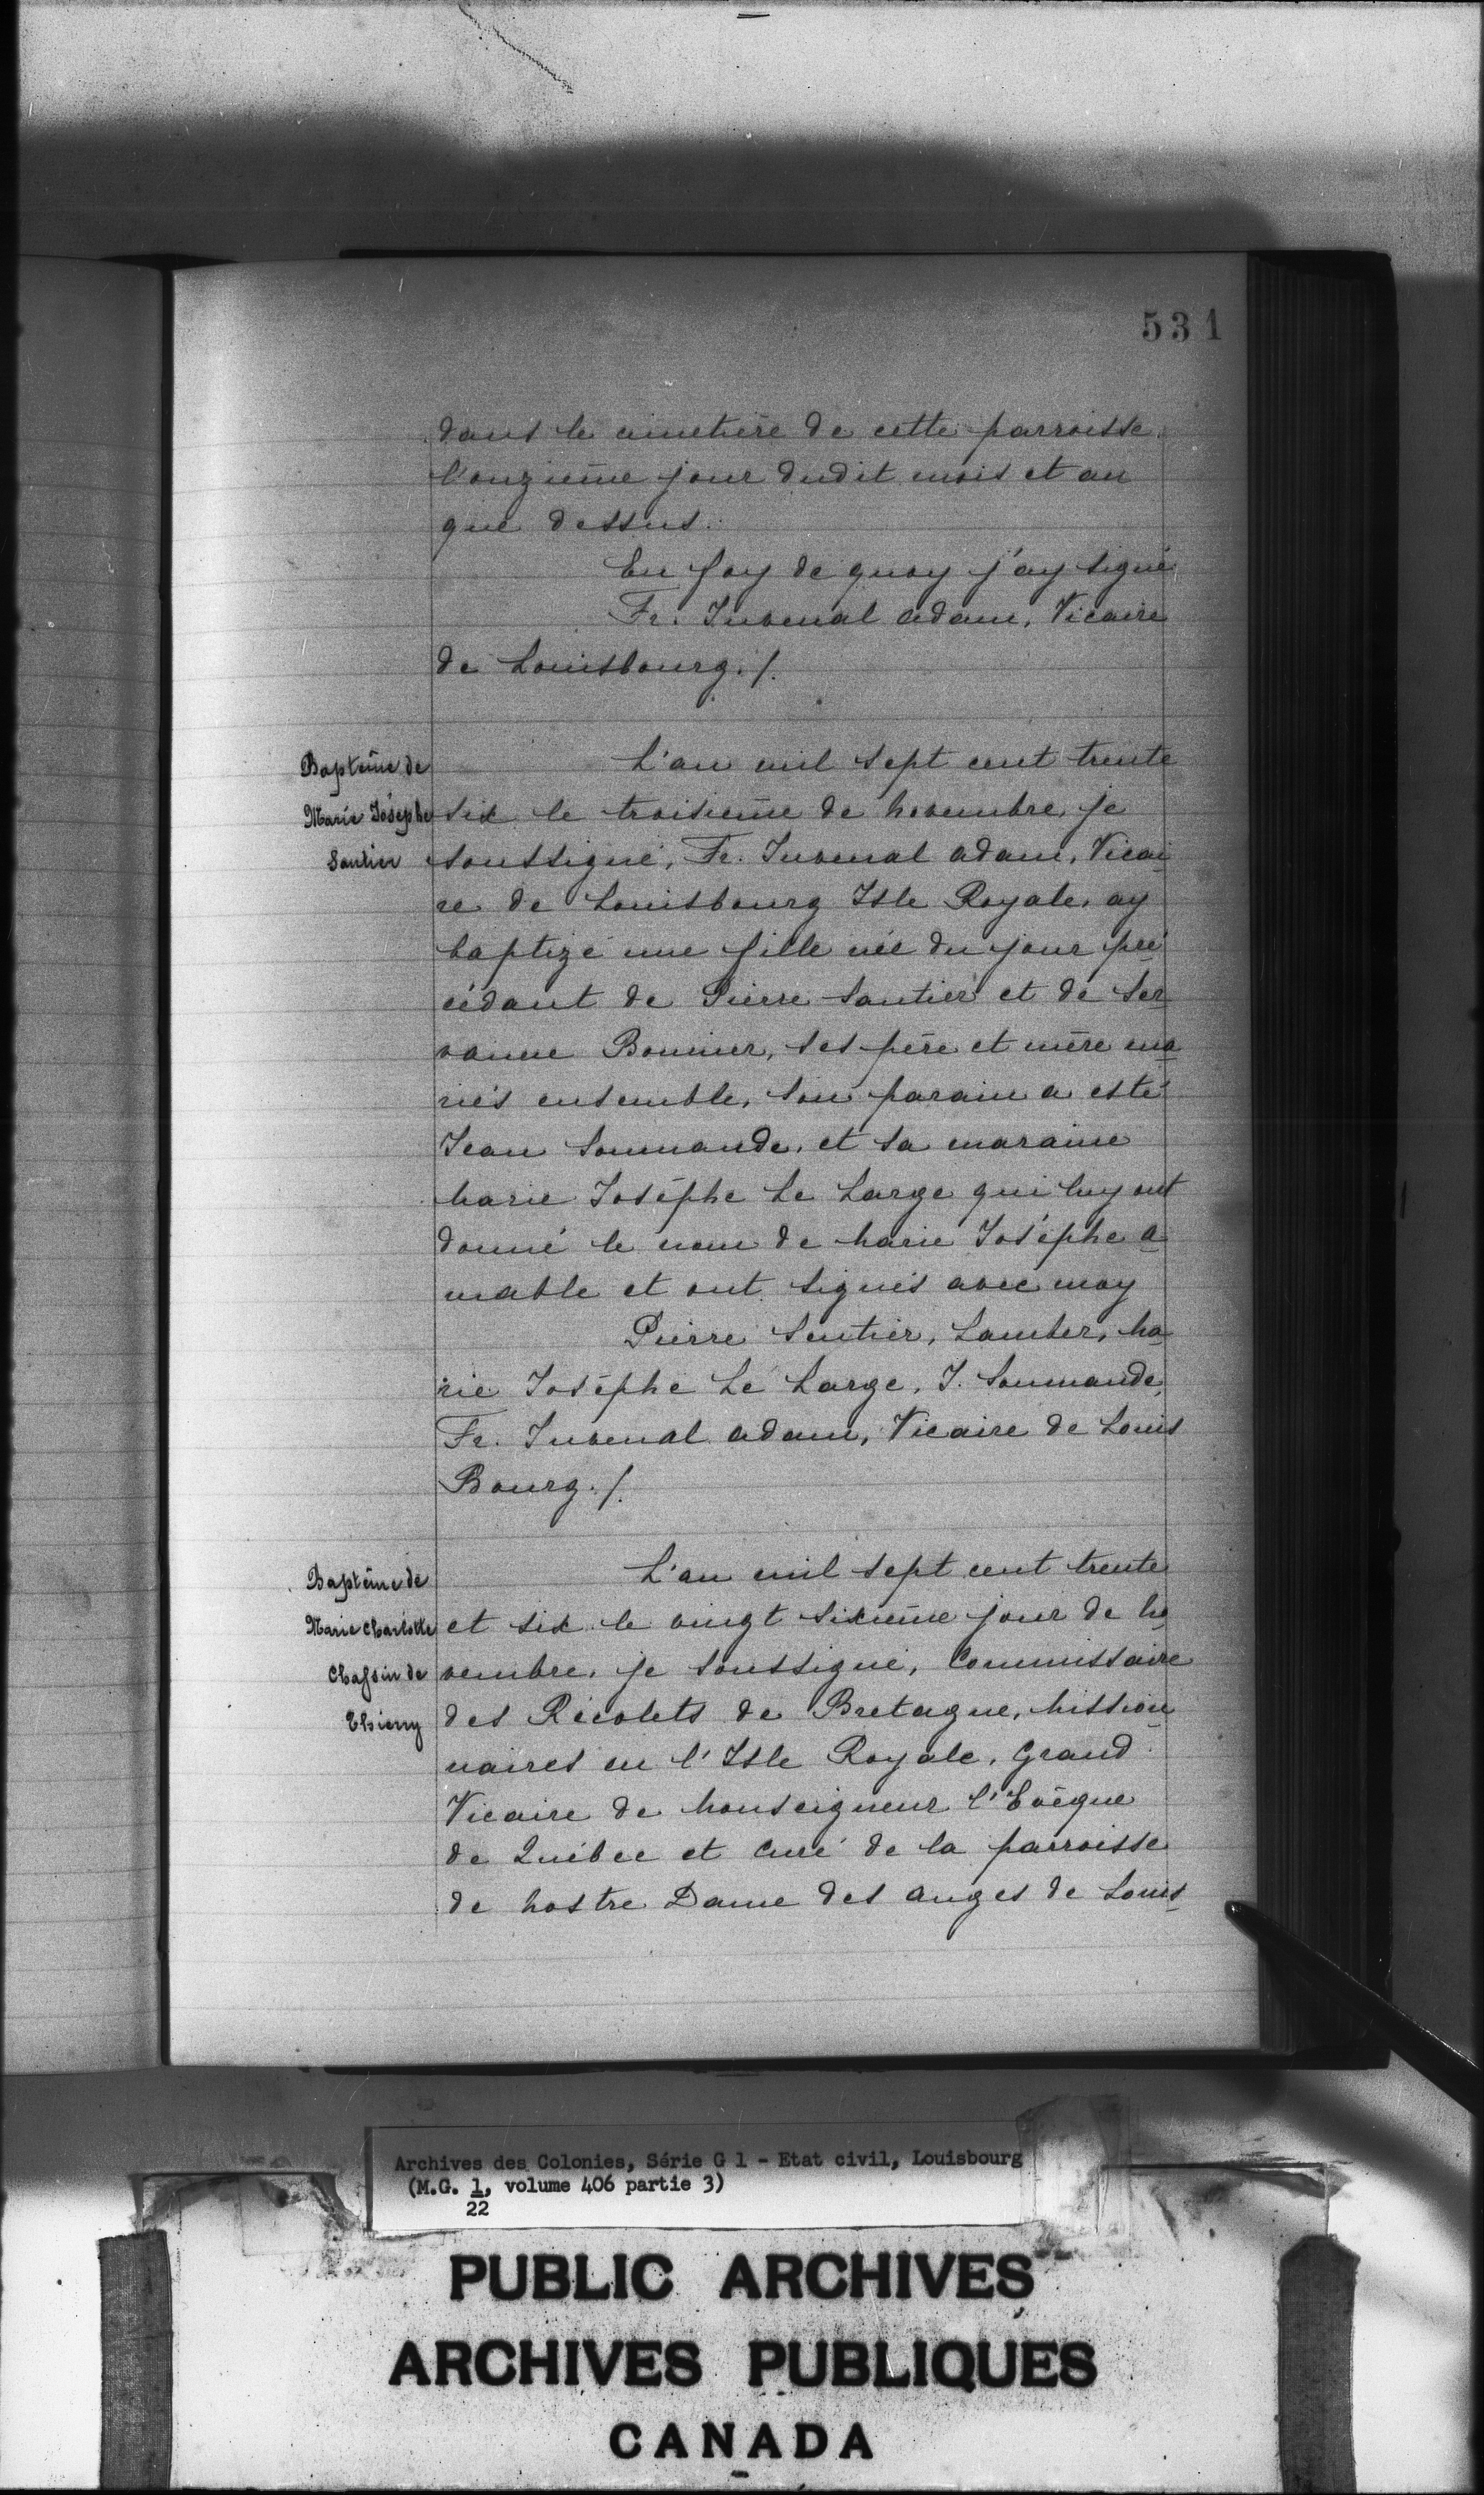 531
dans le cimetière de cette parroisse
l'onzième jour dudit mois et an
que dessus.
En foy de quoy j'ay signé
Fr. Juvenal Adam, Vicaire
de Louisbourg ./.
Baptême de
Marie Josèphe
Santier
L'an mil sept cent trente
six le troisième de Novembre, je
soussigné, Fr. Juvenal Adam, Vicai
re de Louisbourg Isle Royale, ay
baptizé une fille née du jour pré
cédant de Pierre Santier et de Ser
vanne Bonnier, ses père et mère ma
riés ensemble, son parain a esté
Jean Soumande, et sa maraine
Marie Josèphe Le Large qui luy ont
donné le nom de Marie Josèphe A
mable et ont signés avec moy
Pierre Sentier, Lamber, Ma
rie Josèphe Le Large, J. Soumande,
Fr. Juvenal Adam, Vicaire de Louis
Bourg ./.
Baptême de
Marie Charlotte
Chassin de
Thierry
L'an mil sept cent trente
et six le vingt sixième jour de No
vembre, je soussigné, Commissaire
des Récolets de Bretagne, Mission
naires en l'Isle Royale, Grand
Vicaire de Monseigneur l'Evêque
de Québec et Curé de la parroisse
de Nostre Dame des Anges de Louis
Archives des Colonies, Série G 1 - Etat civil, Louisbourg
(M.G. 1, volume 406 partie 3)
22
PUBLIC ARCHIVES
ARCHIVES PUBLIQUES
CANADA